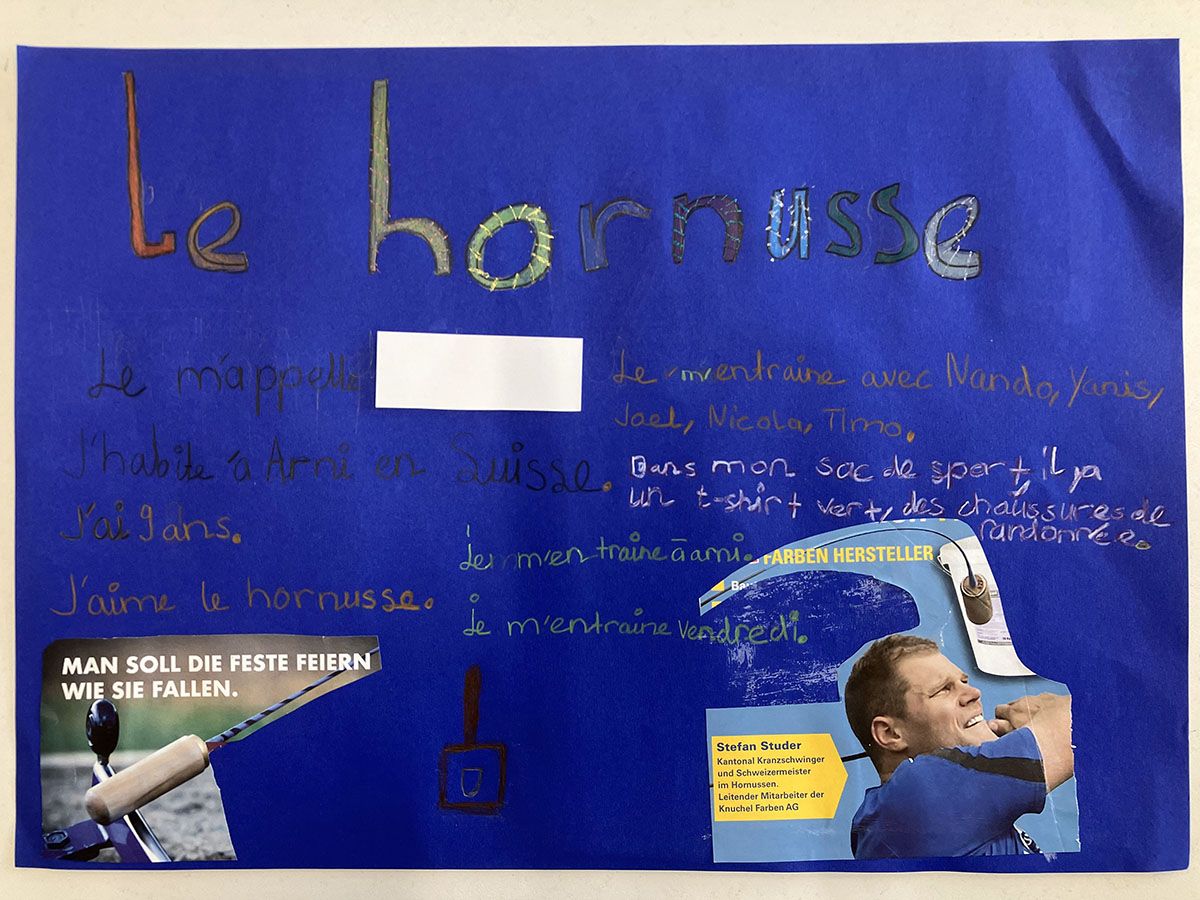 Le hornusse
Le m'appelle
J'habite à Arni en Suisse.
J'ai 9 ans.
J'aime le hornusse.
Le m'entraine avec Nando, Yanis,
Jael, Nicola, Timo.
Dans mon sac de sport, il ya
un t-shirt vert, des chaüssures de
randonnée.
Je m'entraine à arni.
je m'entraine vendredi.
MAN SOLL DIE FESTE FEIERN
WIE SIE FALLEN.
FARBEN HERSTELLER
Stefan Studer
Kantonal Kranzschwinger
und Schweizermeister
im Hornussen.
Leitender Mitarbeiter der
Knuchel Farben AG